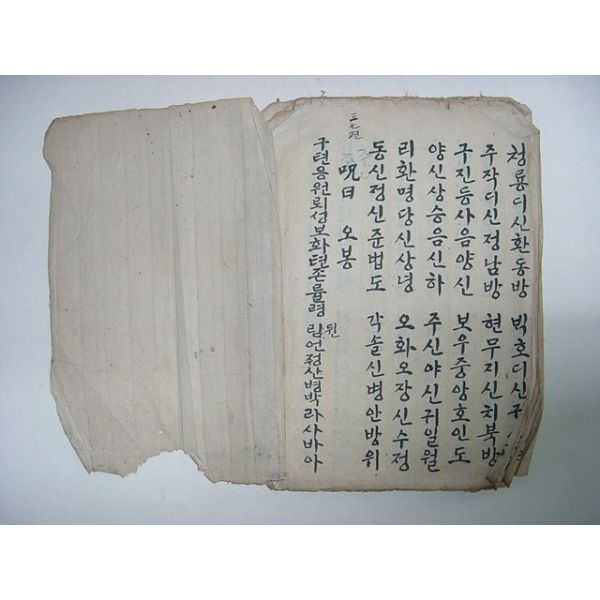 청룡디신환동방 빅호디신구
주작디신정남방 현무지신치북방
구진등사음양신 보우중앙호인도
양신상승음신하 주신야신귀일월
리환명당신상녕 오화오장신수정
동신정신준법도 각솔신병안방위
三七편
呪曰 오봉
구텬응원뢰셩보화텬존률령 림언졍산병박라사바아
뒨